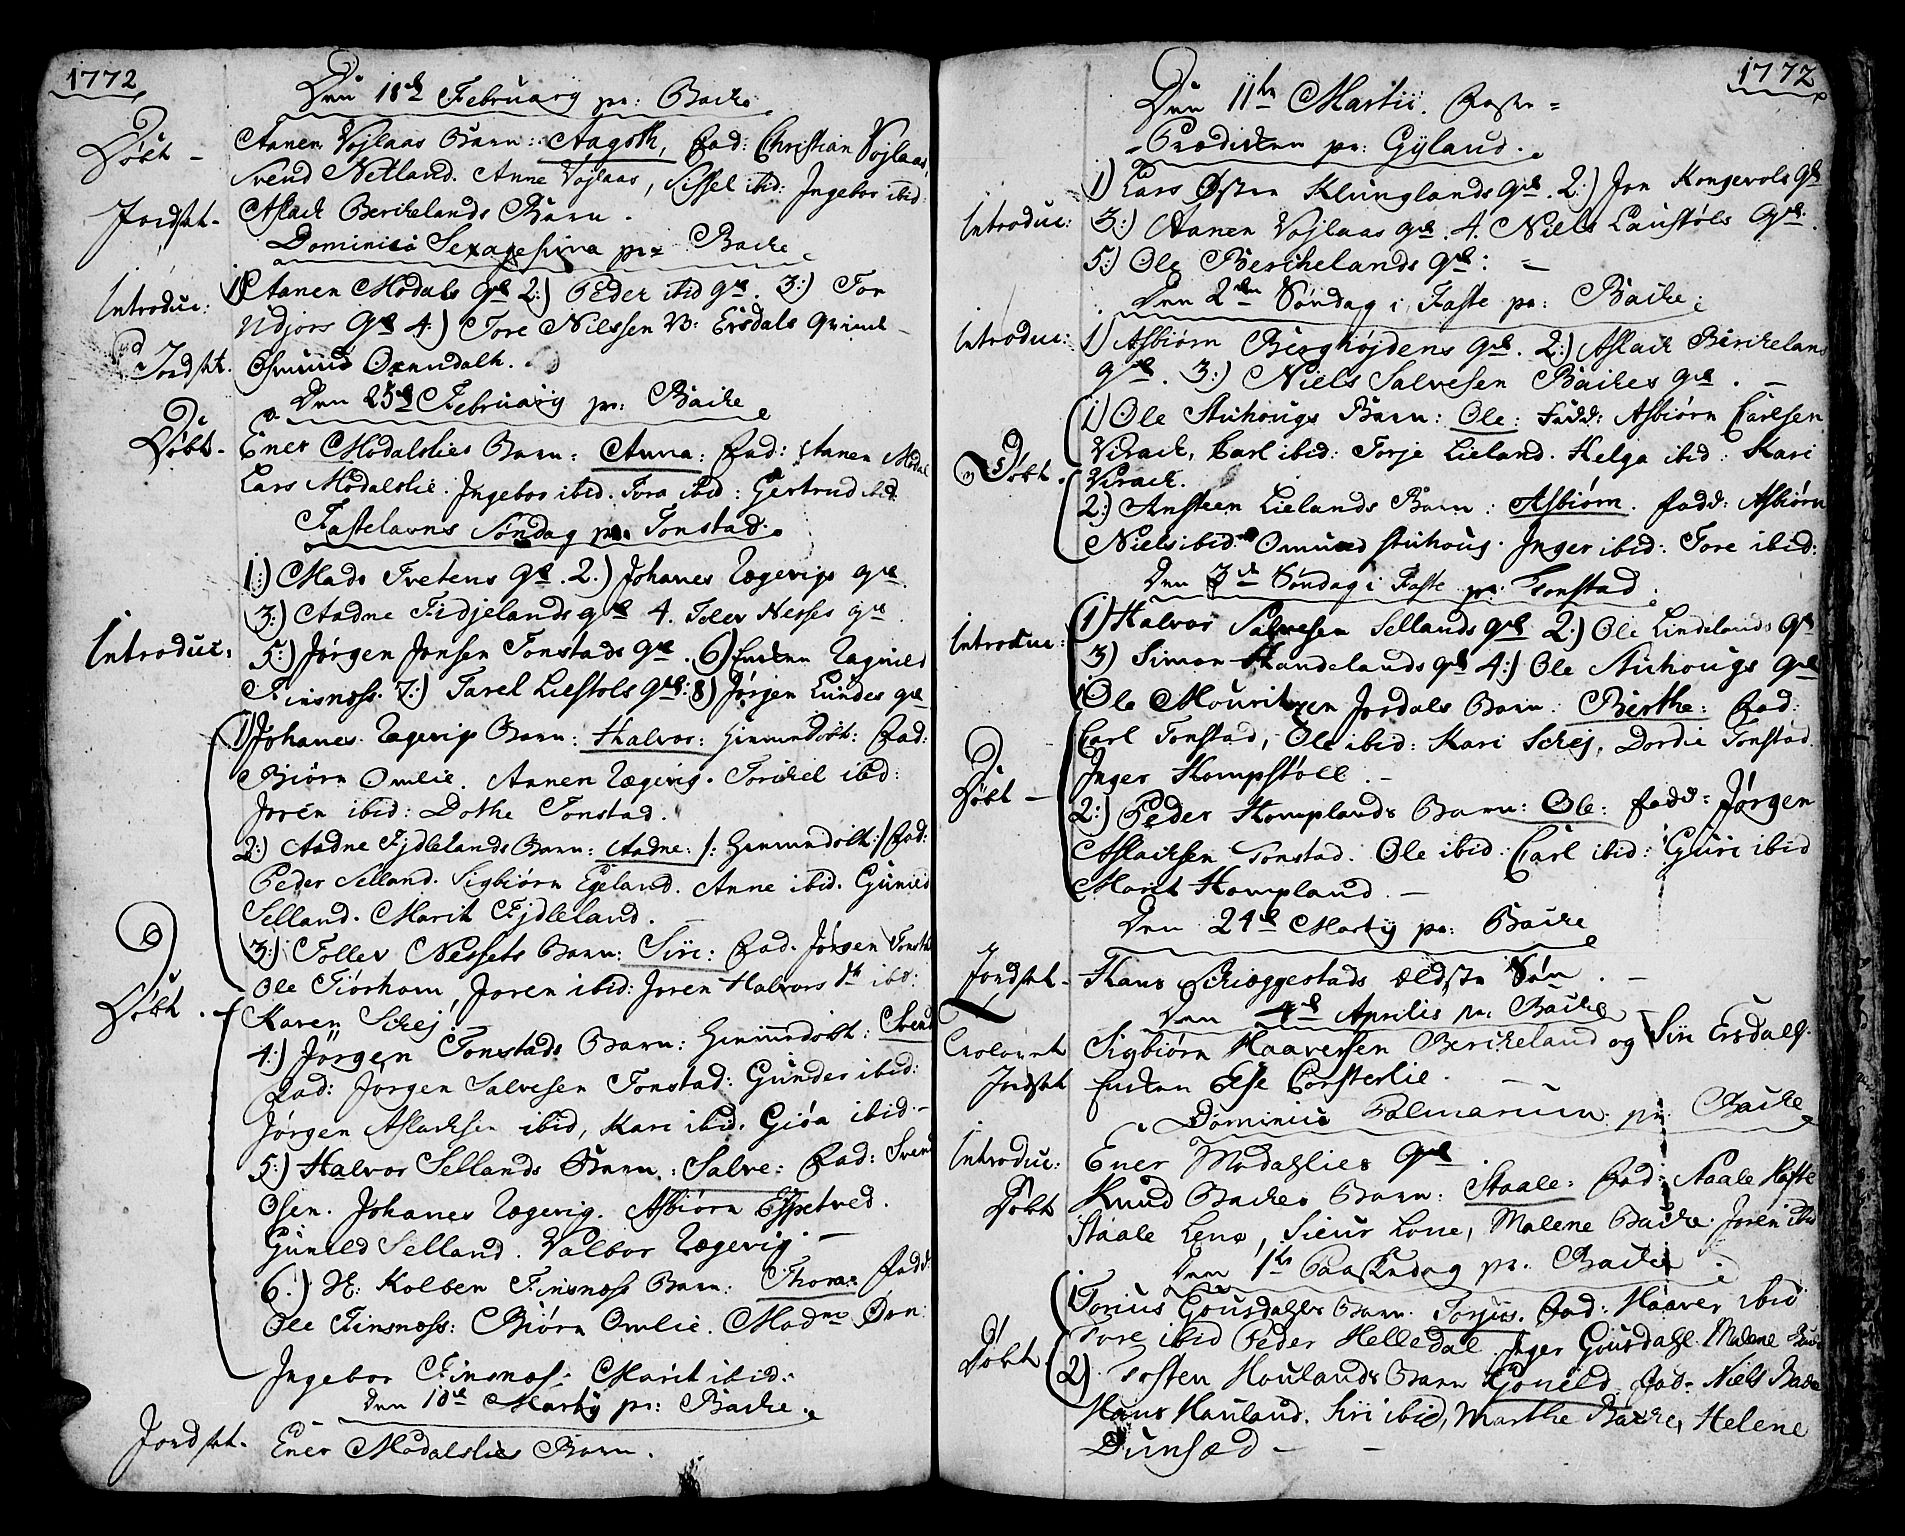 1772
Den 18de Februarij pr: Backe
Døbt – Aanen Vojlaas Barn: Aagoth, Fad: Christian Vojlaas,
Svend Netland. Anne Vojlaas, Sissel ibid: Ingebor ibid:
Jordsat – Aslack Berchelands Barn.
Dominica Sexagesima pr: Backe
Introduc: 1) Aanen Modals qvi 2:) Peder ibid qvi. 3:) Tor
Udjors qvi 4:) Tore Nilssen B: Ersdals qvinde –
Jordsat. Osmund
Den 25de Februarij pr: Backe
Døbt – Ener Modalslies Barn: Anna: Fad: Aanen Modal
Lars Modalslie. Ingebor ibid. Tora ibid: Gertrud ibid.
Fastelavns Søndag pr: Tonstad.
1:) Mads Tvetens qvi. 2.) Johanes Ægevigs qvi
3:) Aadne Fidjelands qvi 4. Toler Nesses qvi
Introduc: 5:) Jørgen Jonsen Tonstads qvi. 6) Enken Ragnild
Finsness. 7:) Tarel Liestøls qvi: 8) Jørgen Lundes qvi
1) Johanes Ægevigs Barn: Halvor: hiemmedøbt: Fad:
Biørn Omlie. Aanen Ægevig. Torchel ibid:
Joren ibid: Dothe Tonstad.
2:) Aadne Fjdlelands Barn: Aadne: /: hiemmedøbt:/ Fad:
Peder Selland. Sigbiørn Egeland. Anne ibid. Gunild
Selland. Marit Fjdleland.
3:) Toller Nessets Barn: Siri: Fad. Jørgen Tonstad
Ole Tiørhom, Joren ibid: Joren Halvors dt ibd:
Døbt. Karen Schej
4:) Jørgen Tonstads Barn: hiemmedøbt: Svend
Fad: Jørgen Salvesen Tonstad: Gunder ibid:
Jørgen Aslachsen ibid, Kari ibid. Giøa ibid. –
5:) Halvor Sellands Barn: Salve: Fad: Svend
Osen. Johanes Ægevig. Asbiørn Espetved.
Gunild Selland. Valbor Ægevig. –
6.) H: Kolben Finsness Barn: Thomas Fadd:
Ole Finsness: Biørn Omlie. Madme Ørn:
Ingebor Finsness: Marit ibid:
Den 10de Martij pr: Backe.
Jordsat. Ener Modalslies Barn.
1772
Den 11te Martii. Faste =
Prædicken pr: Gyland.
1) Lars Østen Klunglands qvi. 2:) Jon Kongevols qvi
Introduc: 3:) Aanen Vojlaas qvi. 4. Niels Laustøls qvi.
5:) Ole Berchelands qvi: –
Den 2den Søndag i Faste pr: Backe:
Introduc: 1) Asbiørn Berghøjdens qvi. 2:) Aslack Berchelans
qvi. 3:) Niels Salvesen Backes qvi. –
1) Ole Stuhougs Barn: Ole: Fadd: Asbiørn Carlsen
Virack, Carl ibid: Torje Lieland. Helga ibid: Kari
Døbt. Virack.
2:) Ansteen Lielands Barn: Asbiørn. Fadd: Asbiørn
Niels ibid: Omund Stuhoug. Inger ibid: Tore ibid:
Den 3de Søndag i Faste pr: Tonstad.
Introduc: 1) Halvor Salvesen Sellands qvi 2:) Ole Lindelands qvi
3) Simon Handelands qvi 4:) Ole Stuhougs qvi
1 Ole Mouritzen Jordals Barn: Berthe: Fad:
Carl Tonstad, Ole ibid: Kari Schej, Dordie Tonstad.
Døbt – Inger Hompstøll. –
2:) Peder Homplands Barn: Ole: Fadd: Jørgen
Aslachsen Tonstad. Ole ibid: Carl ibid: Guri ibid
Marit Hompland. –
Den 24de Martij pr: Backe
Jordsat – Hans Schieggestads ældste Søn. –
Den 4de Aprilis pr: Backe
Trolovet Sigbiørn Haaversen Bercheland og Siri Ersdahl.
Jordsat Enken Else Corsterlie. –
Dominica Palmarum: pr: Backe
Introduc: Ener Modahlies qvi
Døbt Knud Backes Barn: Staale: Fad: Staale Høfte
Staale Lene, Siur Lone, Malene Backe. Joren ibid
Den 1te Paaskedag pr. Backe
1. Torius Gousdahls Barn. Torjus. Fad: Haaver ibid
Døbt. Tore ibid Peder Helledal. Inger Gousdahl. Malene
2) Tosten Houlands Barn Gonild. Fad: Niels Backe
Hans Houland. Siri ibid, Marthe Backe, Helene
Dunsæd –